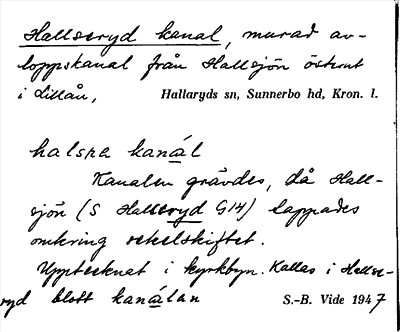 Hallseryd kanal, murad av-
loppskanal från Hallsjön österut
i Lillån, Hallaryds sn, Sunnerbo hd, Kron. l.
halsra kanál
Kanalen grävdes, då Hall-
sjön (S Hallseryd G14) tappades
omkring sekelskiftet.
Upptecknat i kyrkbyn. Kallas i Hallse-
ryd blott kanálan S.-B. Vide 1947